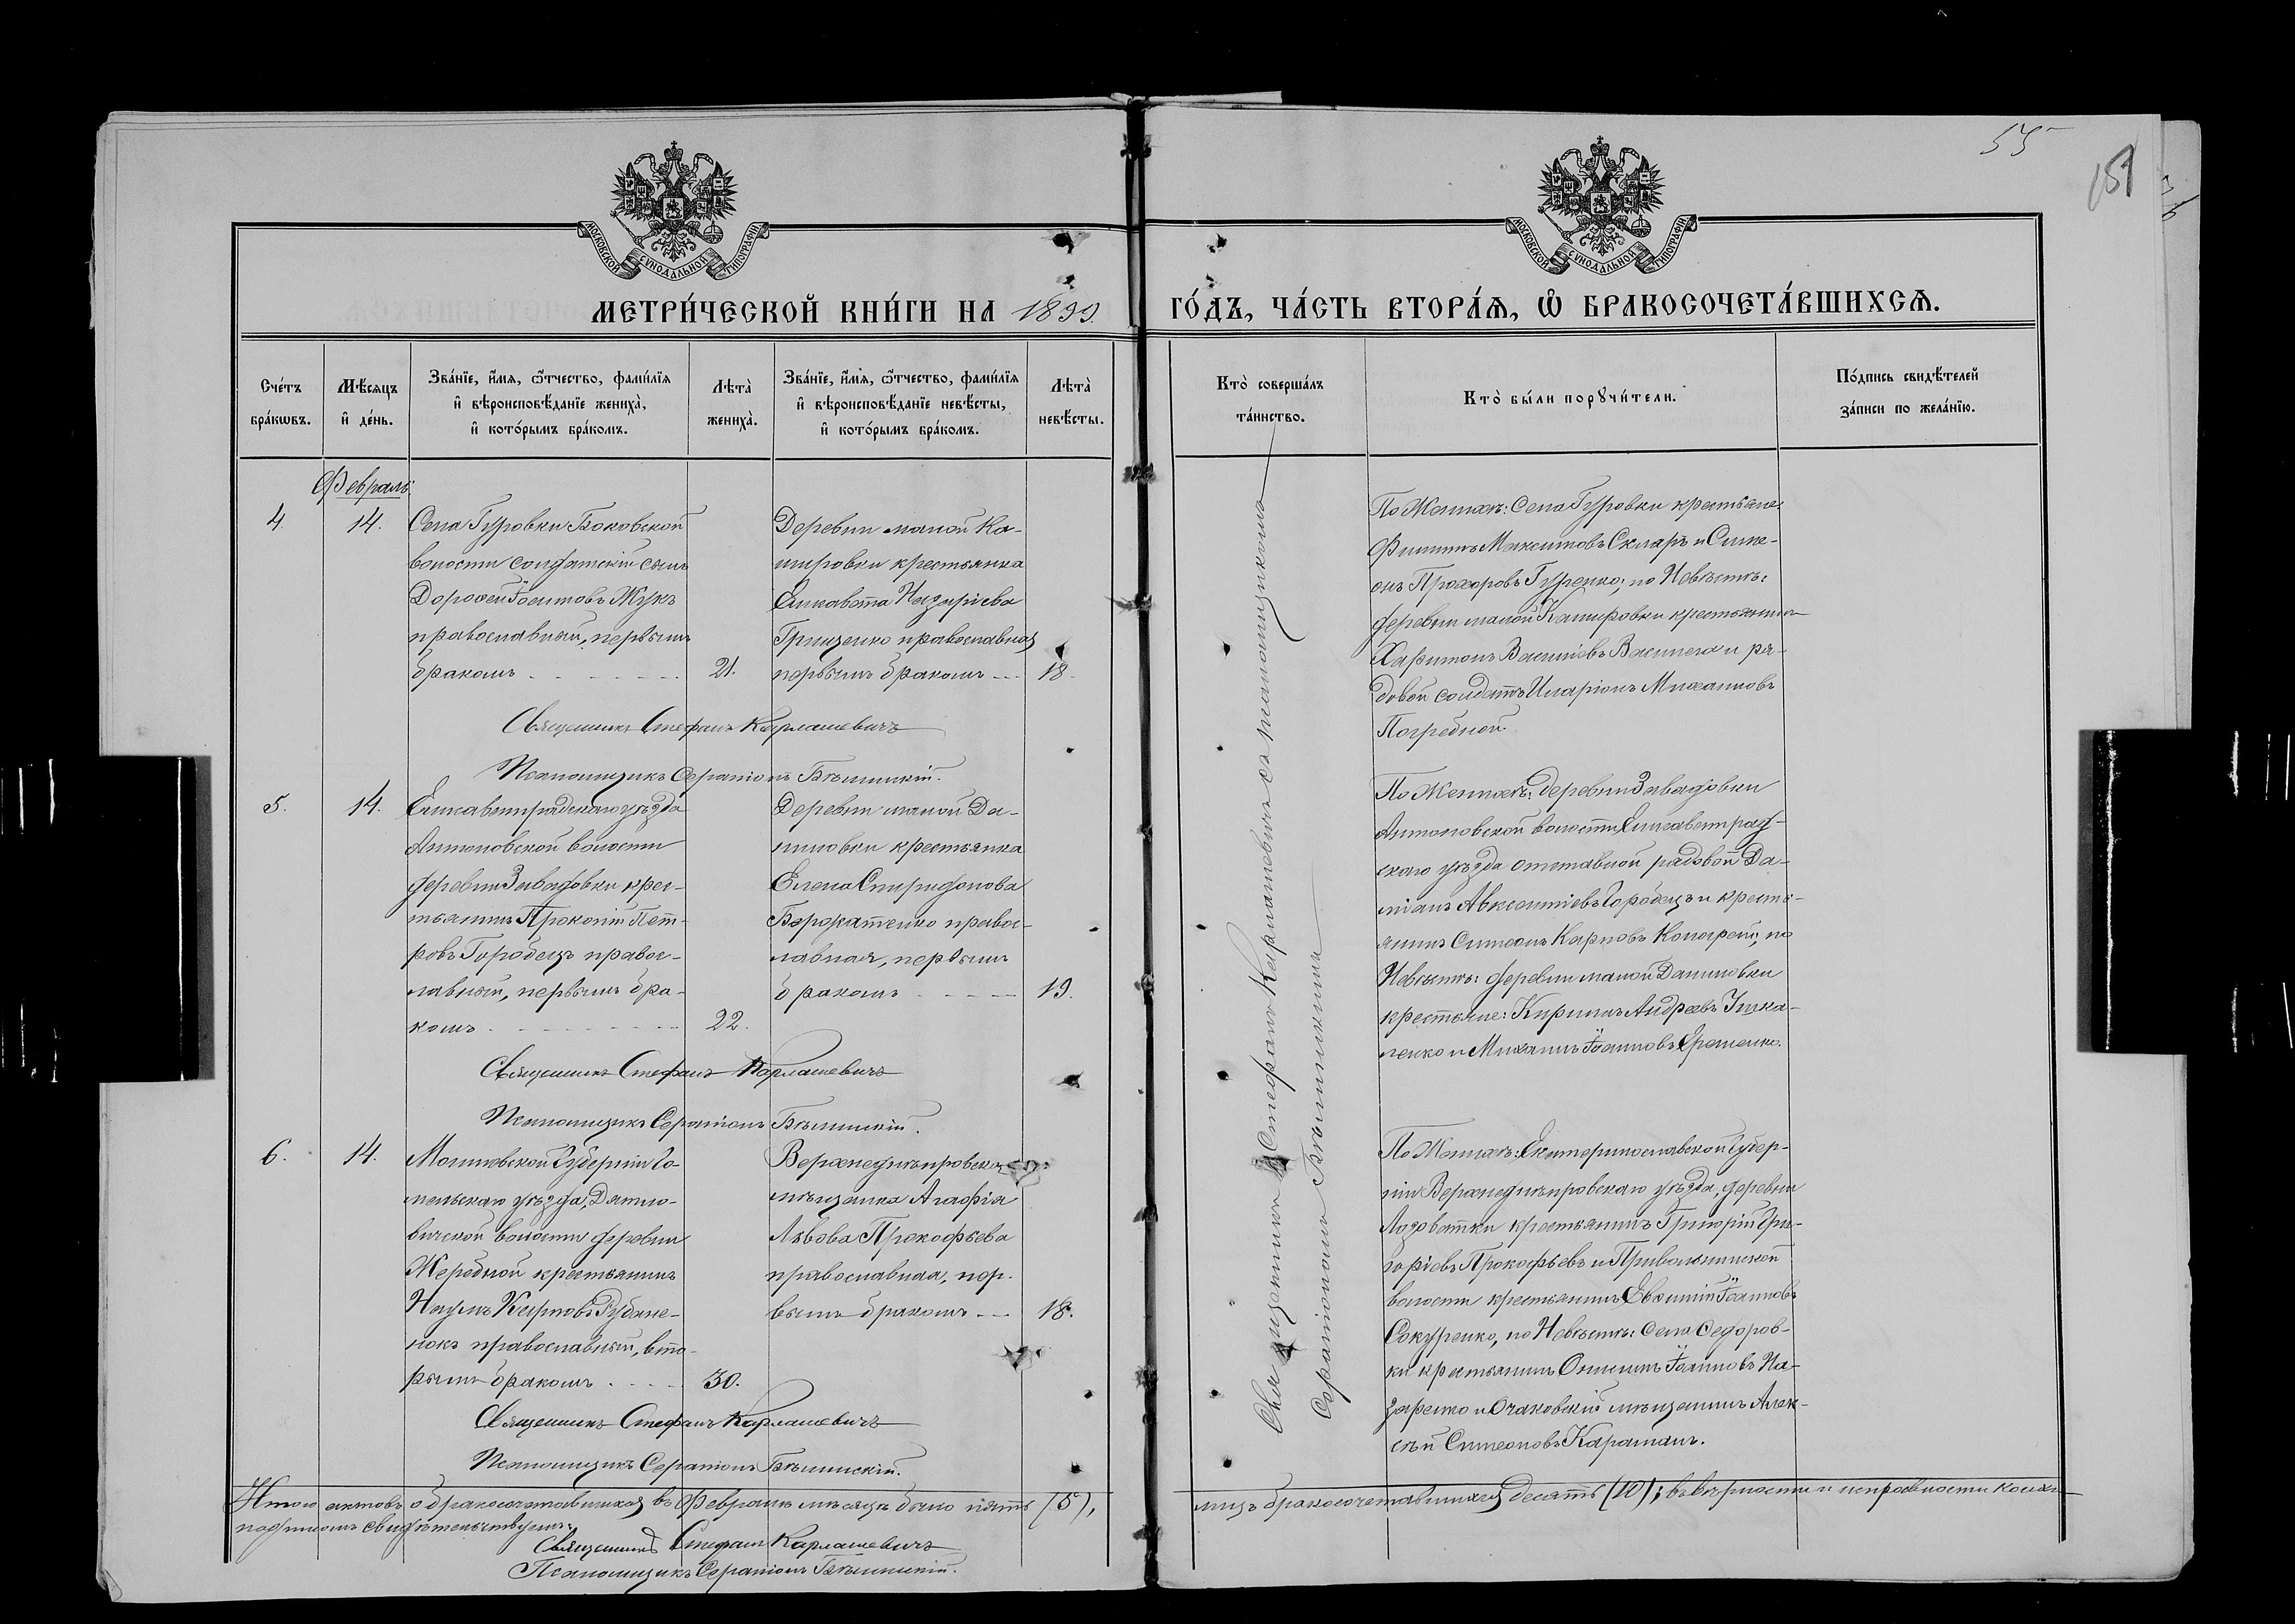 55
159
МОСКОВСКОЙ СѴНОДАЛЬНОЙ ТИПОГРАФІИ
МОСКОВСКОЙ СѴНОДАЛЬНОЙ ТИПОГРАФІИ
МЕТРИ́ЧЕСКОЙ КНИ́ГИ НА 1899 ГО́ДЪ, ЧА́СТЬ ВТОРА́Я, Ѡ БРАКОСОЧЕТА́ВШИХСЯ.
Сче́тъ
бра́кѡвъ.
Мѣ́сяцъ
и де́нь.
Зва́нїе, и́мя, ѻ҆́тчество, фами́лїя
и вѣроисповѣ́данїе жениха̀,
и кото́рымъ бра́комъ.
Лѣта̀
жениха̀.
Зва́нїе, и́мя, ѻ҆́тчество, фами́лїя
и вѣроисповѣ́данїе невѣ́сты,
и кото́рымъ бра́комъ.
Лѣта̀
невѣ́сты.
Кто̀ соверша́лъ
та́инство.
Кто̀ бы́ли порꙋчи́тели.
По́дпись свидѣ́телей
за́писи по жела́нїю.
Февраль.
4.
14.
Села Гуровки Боковской
волости солдатскій сынъ
Дорофей Іоанновъ Жукъ
православный, первымъ
бракомъ
21.
Деревни малой Ка-
шировки крестьянка
Елисавета Назаріева
Гриценко православная
первымъ бракомъ
18.
Священникъ Стефанъ Карлашевичъ
Псаломщикъ Серапіонъ Бѣлинскій.
По Женихѣ: Села Гуровки крестьяне:
Филиппъ Максимовъ Скляръ и Симе-
онъ Прохоровъ Гуренко; по Невѣстѣ:
деревни малой Кашировки крестьянинъ
Харитонъ Василіевъ Василега и ря-
довой солдатъ Иларіонъ Михаиловъ
Погребной.
5.
14.
Елисаветградскаго уѣзда
Антоновской волости
деревни Завадовки крес-
тьянинъ Прокопій Пет-
ровъ Городецъ правос-
лавный, первымъ бра-
комъ
22.
Деревни малой Да-
ниловки крестьянка
Елена Спиридонова
правос-
лавная, первымъ
бракомъ
19.
Священникъ Стефанъ Карлашевичъ
Псаломщикъ Серапіонъ Бѣлинскій.
По Женихѣ: деревни Завадовки
Антоновской волости Елисаветград-
скаго уѣзда отставной рядовой Да-
міанъ Авксентіевъ Городецъ и кресть-
янинъ Симеонъ Карповъ по
Невѣстѣ: деревни малой Даниловки
крестьяне: Кириллъ Андреевъ
и Михаилъ Іоанновъ Еременко.
6.
14.
Могилевской Губерніи Го-
мельскаго уѣзда, Дятло-
вичской волости деревни
Жеребной крестьянинъ
Наумъ Карповъ Рубане-
нокъ православный, вто-
рымъ бракомъ
30.
Верхнеднѣпровская
мѣщанка Агафія
Львова Прокофьева
православная, пер-
вымъ бракомъ
18.
Священникъ Стефанъ Карлашевичъ
Псаломщикъ Серапіонъ Бѣлинскій.
По Женихѣ: Екатеринославской Губер-
ніи Верхнеднѣпровскаго уѣзда, деревни
Лозоватки крестьянинъ Григорій Гри-
горіевъ Прокофьевъ и
волости крестьянинъ Евфимій Іоанновъ
Сокуренко, по Невѣстѣ: села Федоров-
ки крестьянинъ Онисимъ Іоанновъ На-
заренко и Очаковскій мѣщанинъ Алек-
сѣй Симеоновъ Караманъ.
Священникъ Стефанъ Карлашевичъ съ псаломщикомъ
Серапіономъ Бѣлинскимъ
Итого актовъ о бракосочетавшихся въ Февралѣ мѣсяцѣ было пять (5), лицъ бракосочетавшихся десять (10); въ вѣрности и исправности коихъ
подписомъ свидѣтельствуемъ:
Священникъ Стефанъ Карлашевичъ
Псаломщикъ Серапіонъ Бѣлинскій.